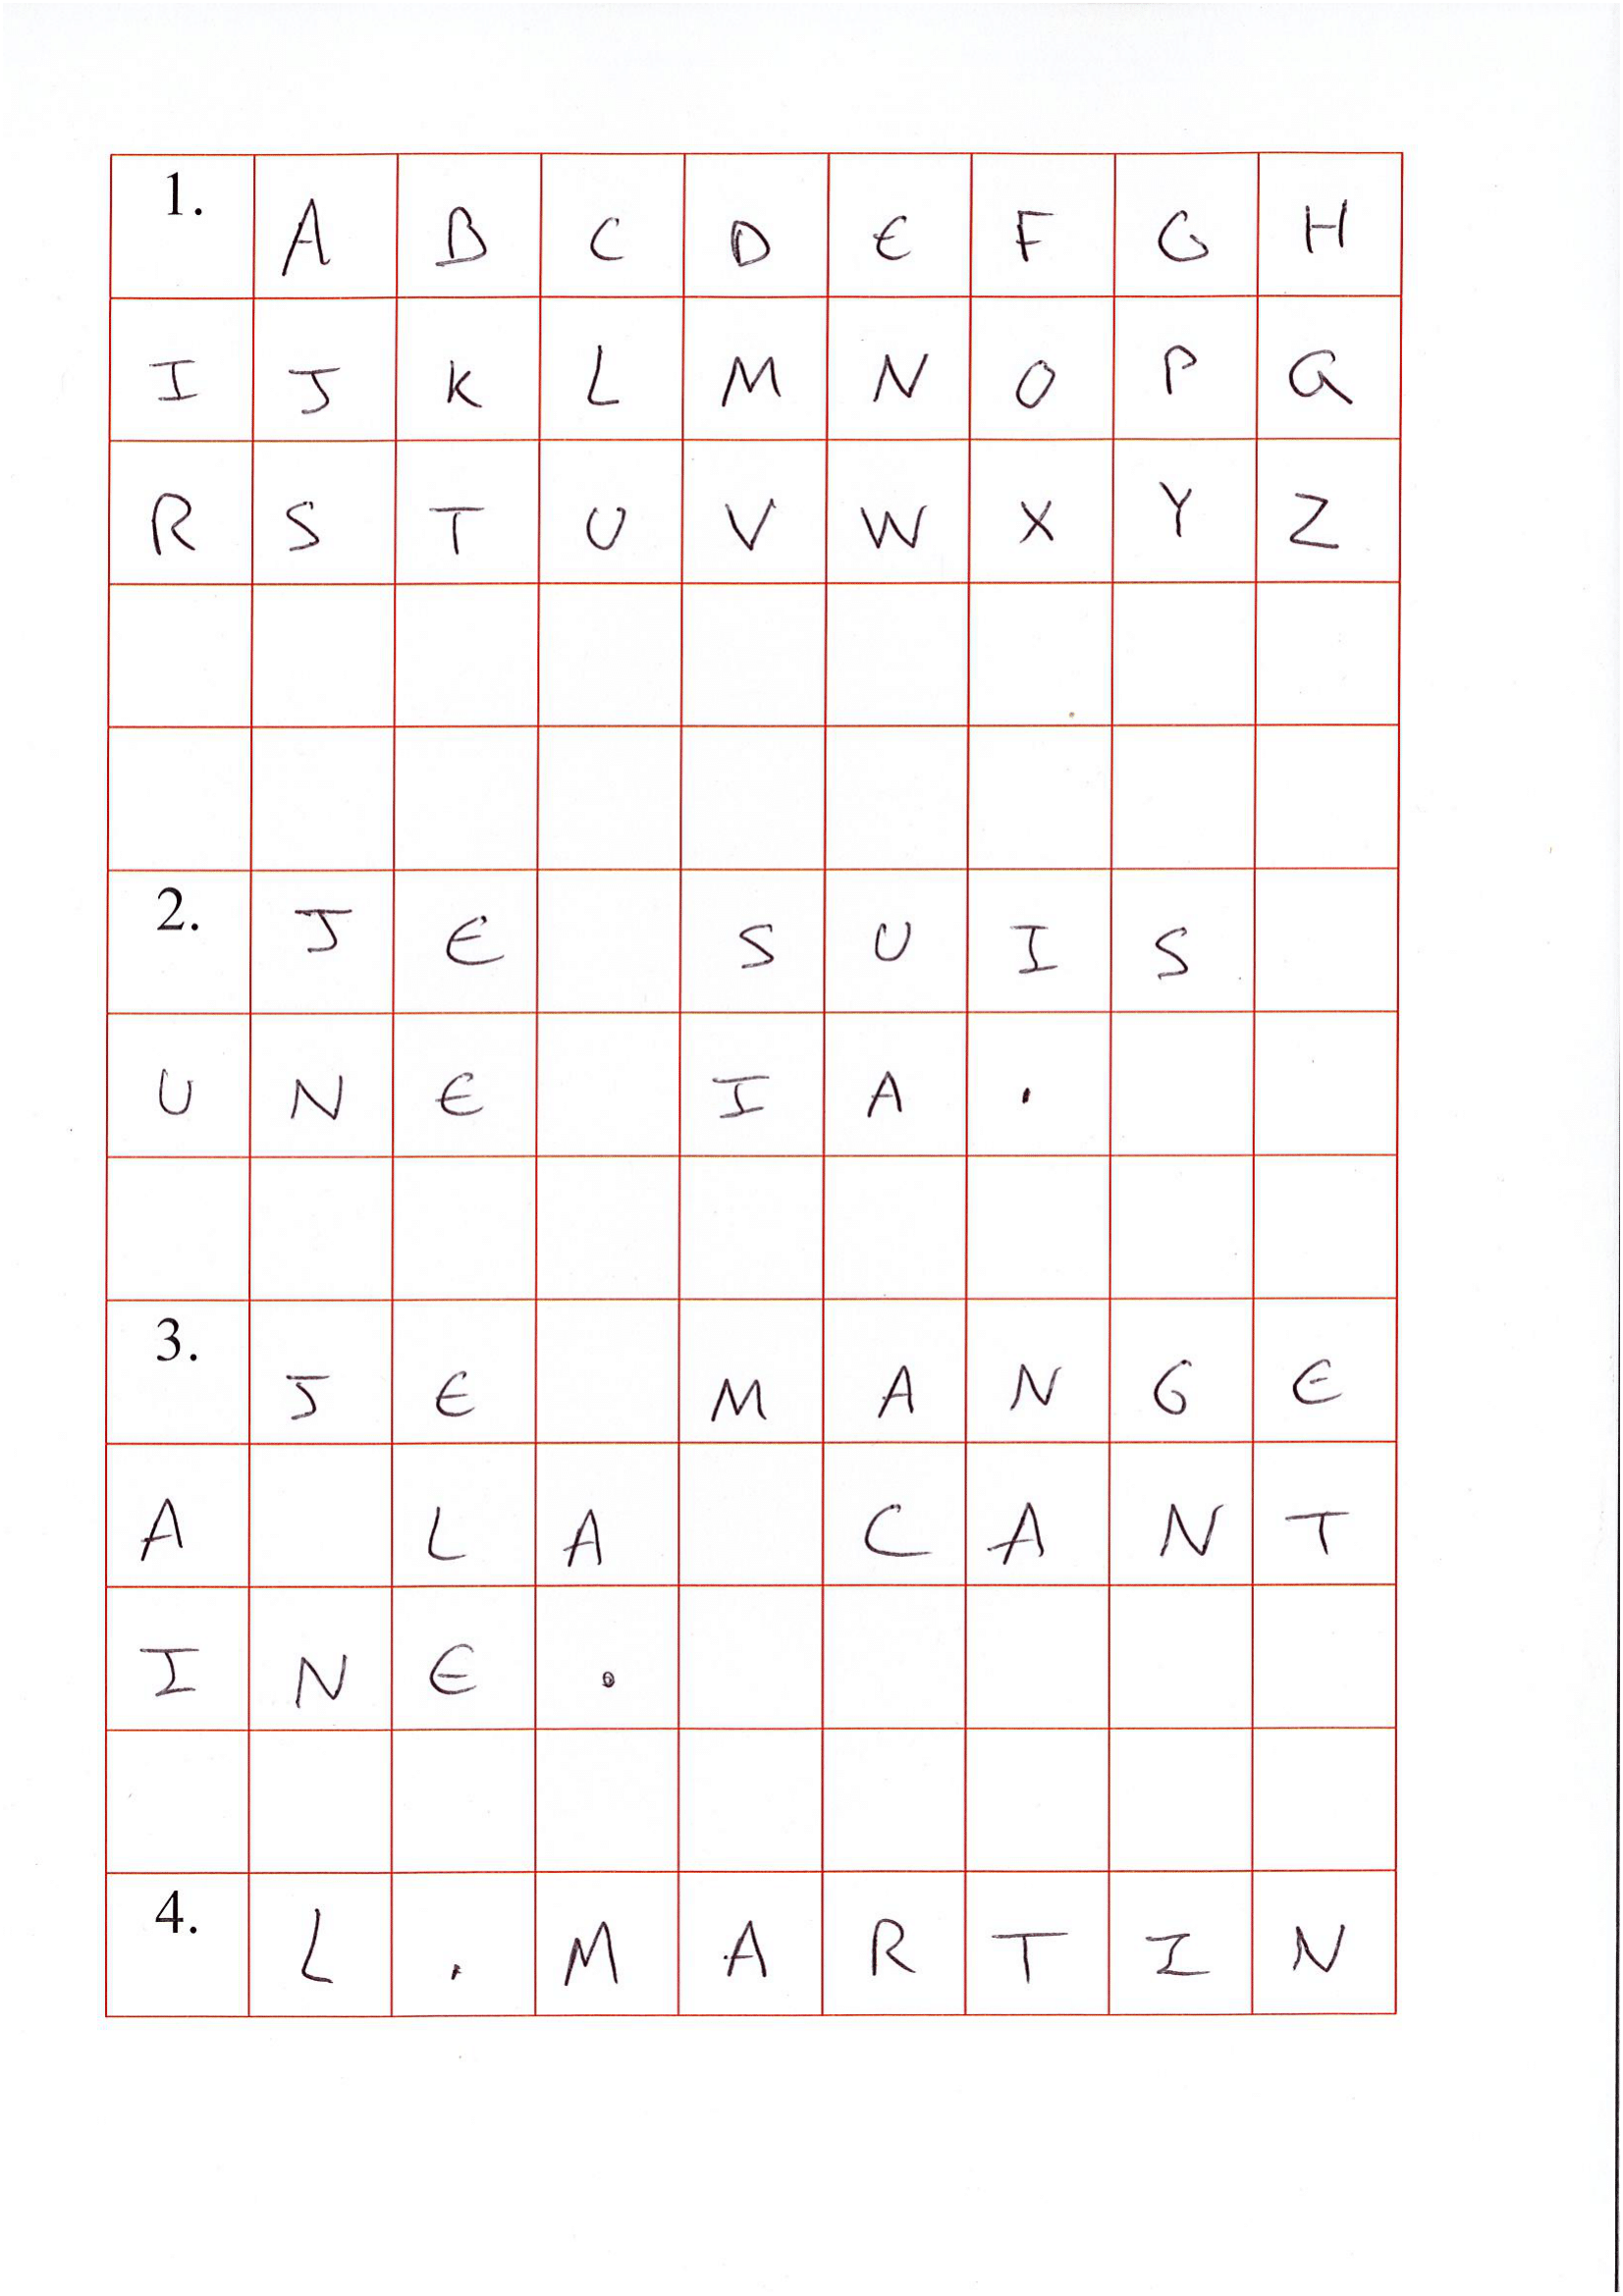 1. A B C D E F G H
I J K L M N O P Q
R S T U V W X Y Z
2. J E   S U I S
U N E   I A .
3. J E   M A N G E
A   L A   C A N T
I N E .
4. L . M A R T I N